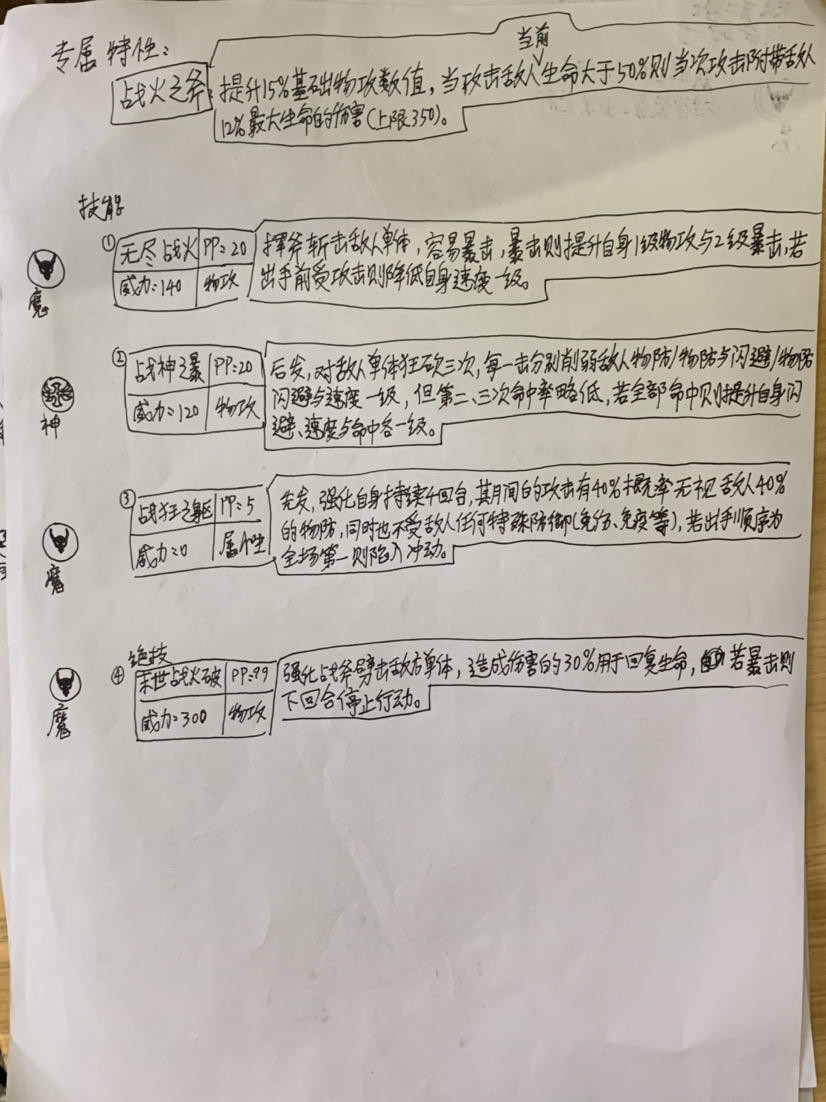 专属特性：
当前
战火之斧：提升15%基础物攻数值，当攻击敌人生命大于50%则当次攻击附带敌人
12%最大生命的伤害(上限350)。
技能
① 无尽战火 PP：20 挥斧斩击敌人单体，容易暴击，暴击则提升自身1级物攻与2级暴击，若
威力：140 物攻 出手前受攻击则降低自身速度一级。
魔
② 战神之暴 PP：20 后发，对敌人单体狂砍三次，每一击分别削弱敌人物防/物防与闪避/物防
威力：120 物攻 闪避与速度一级，但第二、三次命中率略低，若全部命中则提升自身闪
避、速度与命中各一级。
神
③ 战狂之躯 PP：5 先发，强化自身持续4回合，其月间的攻击有40%概率无视敌人40%
威力：0 属性 的物防，同时也不受敌人任何特殊防御(免伤、免疫等)，若出手顺序为
全场第一则陷入冲动。
魔
绝技
④ 末世战火破 PP：99 强化战斧劈击敌方单体，造成伤害的30%用于回复生命，若暴击则
威力：300 物攻 下回合停止行动。
魔